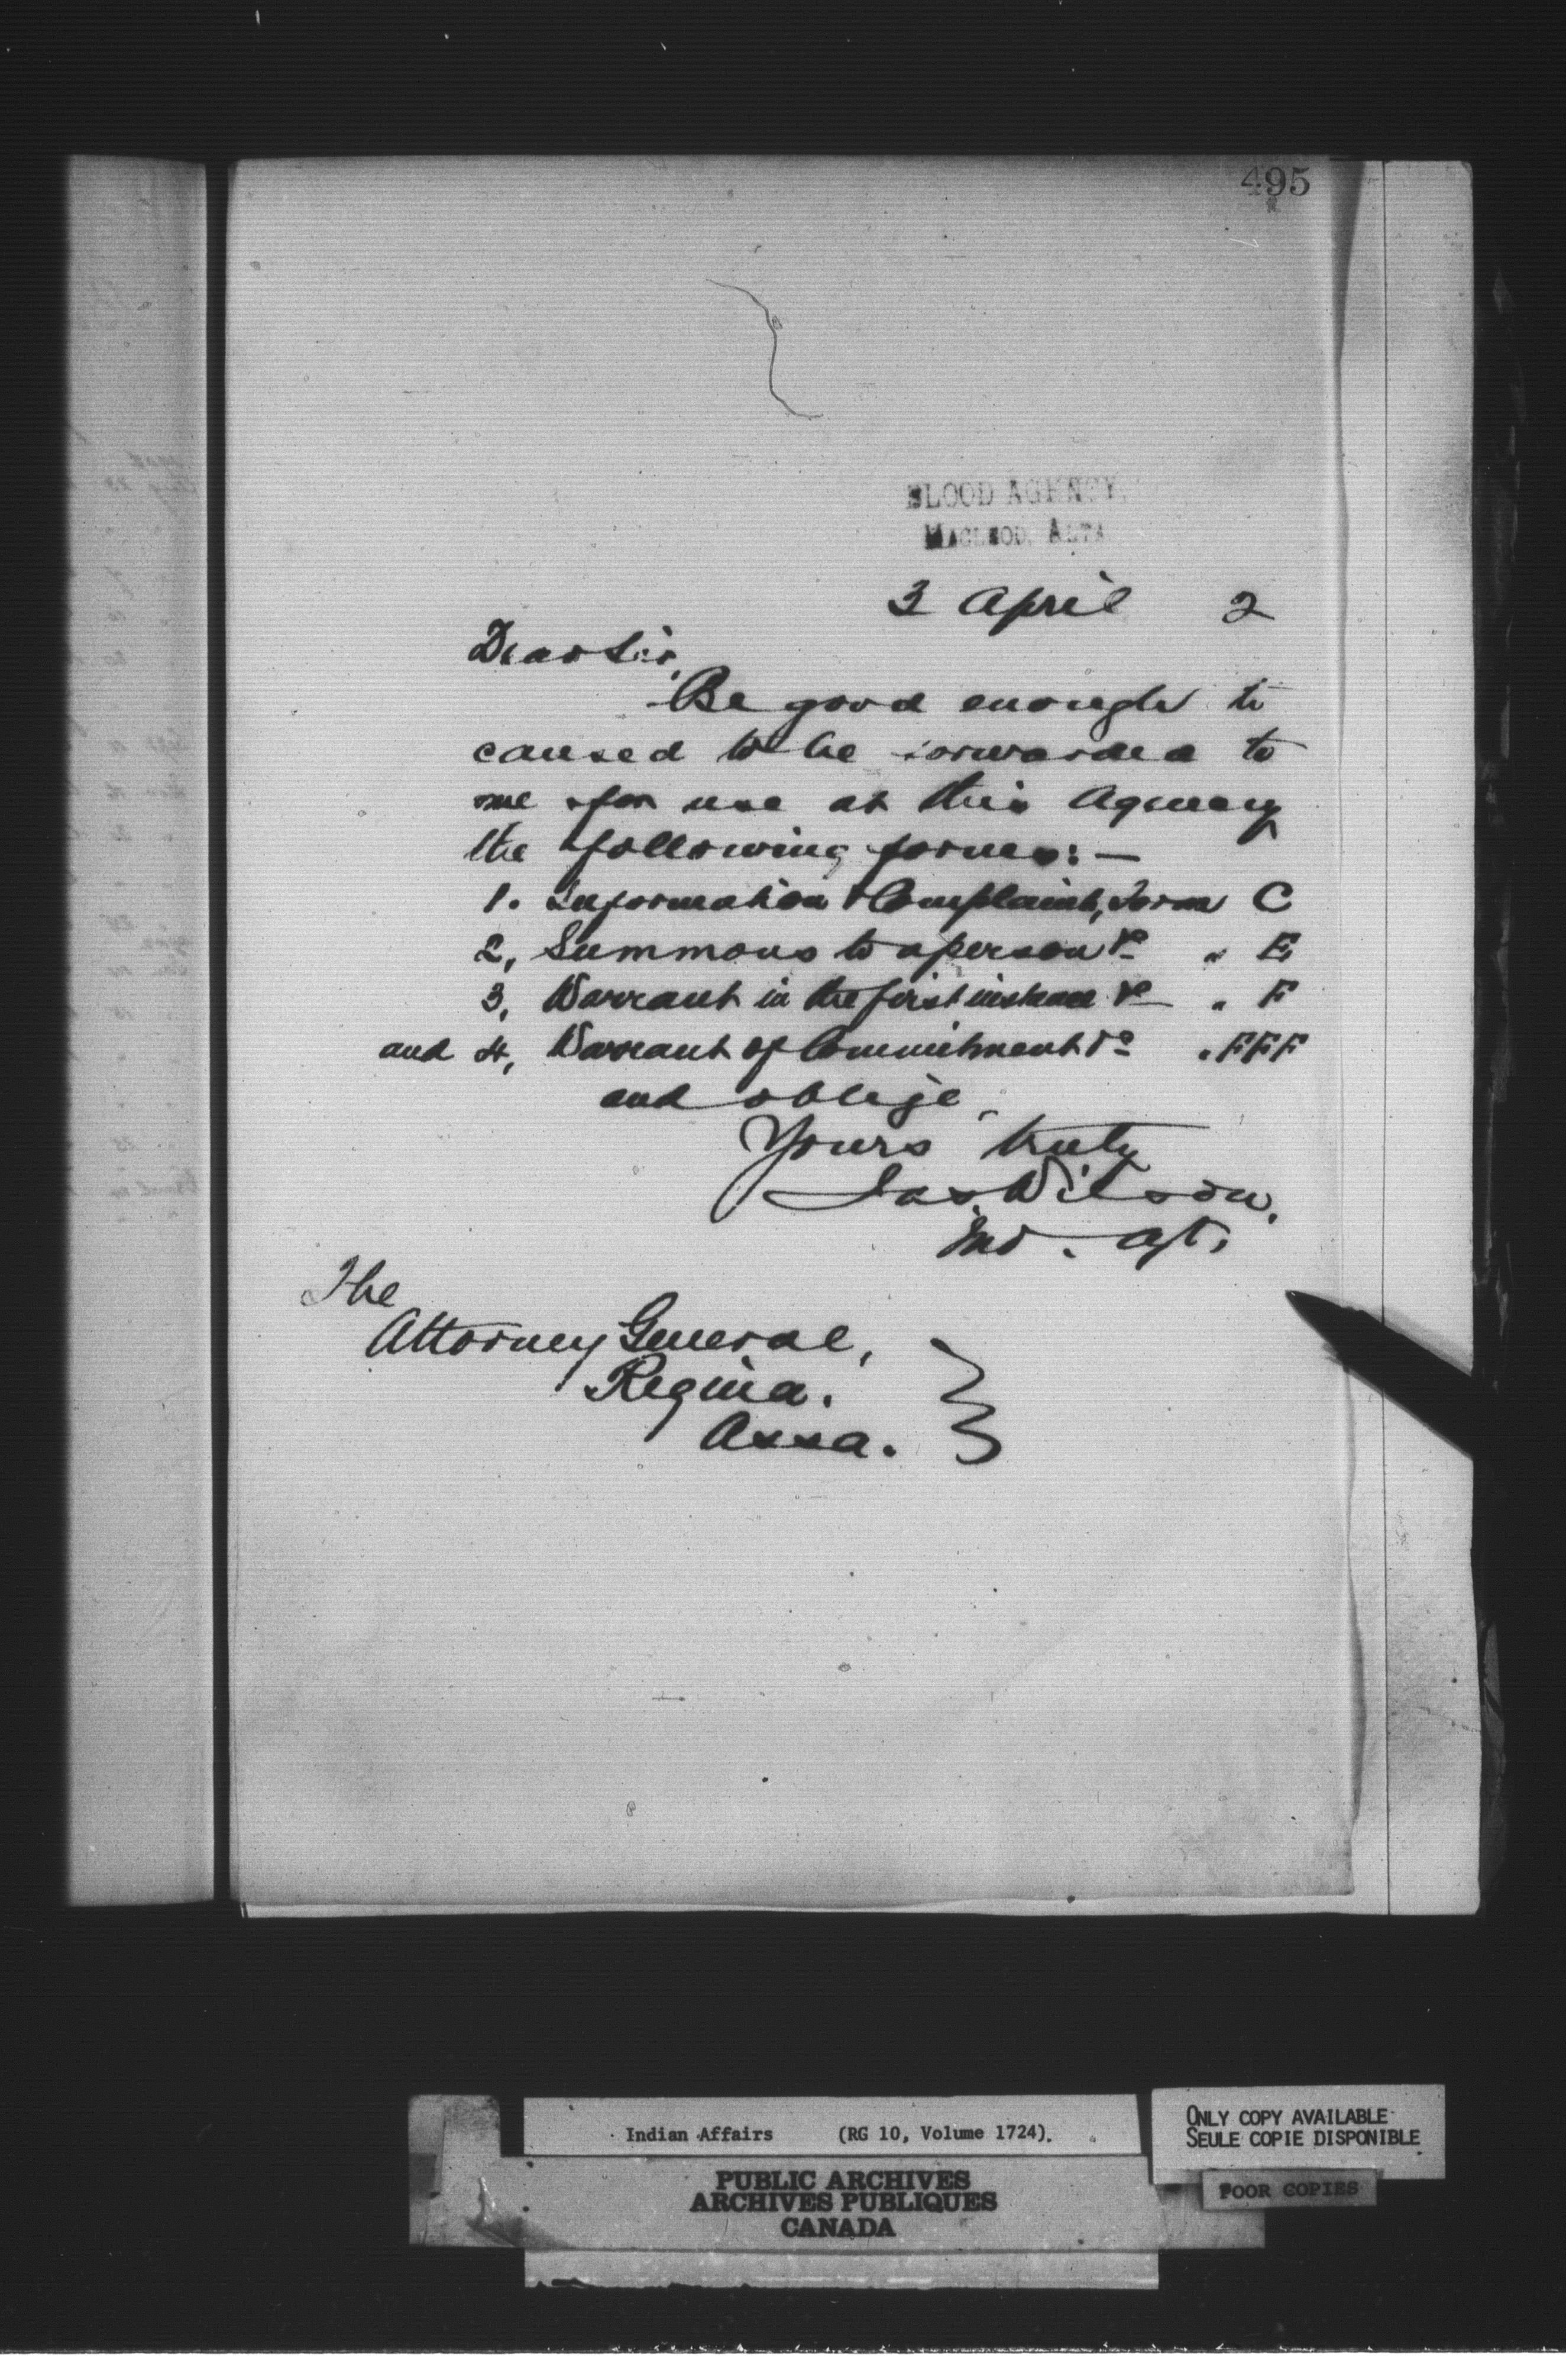 495
BLOOD AGENCY,
MACLEOD, ALTA
3 April 2
Dear Sir,
Be good enough to
caused to be forwarded to
me for use at this Agency
the following forms:—
1. Information & Complaint, Form C
2, Summons to a person &c " E
3, Warrant in the first instance &c " F
and 4, Warrant of Commitment &c " FFF
and oblige,
Yours truly
Jas. Wilson,
Ind. Agt.
The
Attorney General,
Regina.
Assa.
Indian Affairs (RG 10, Volume 1724).
PUBLIC ARCHIVES
ARCHIVES PUBLIQUES
CANADA
ONLY COPY AVAILABLE
SEULE COPIE DISPONIBLE
POOR COPIES